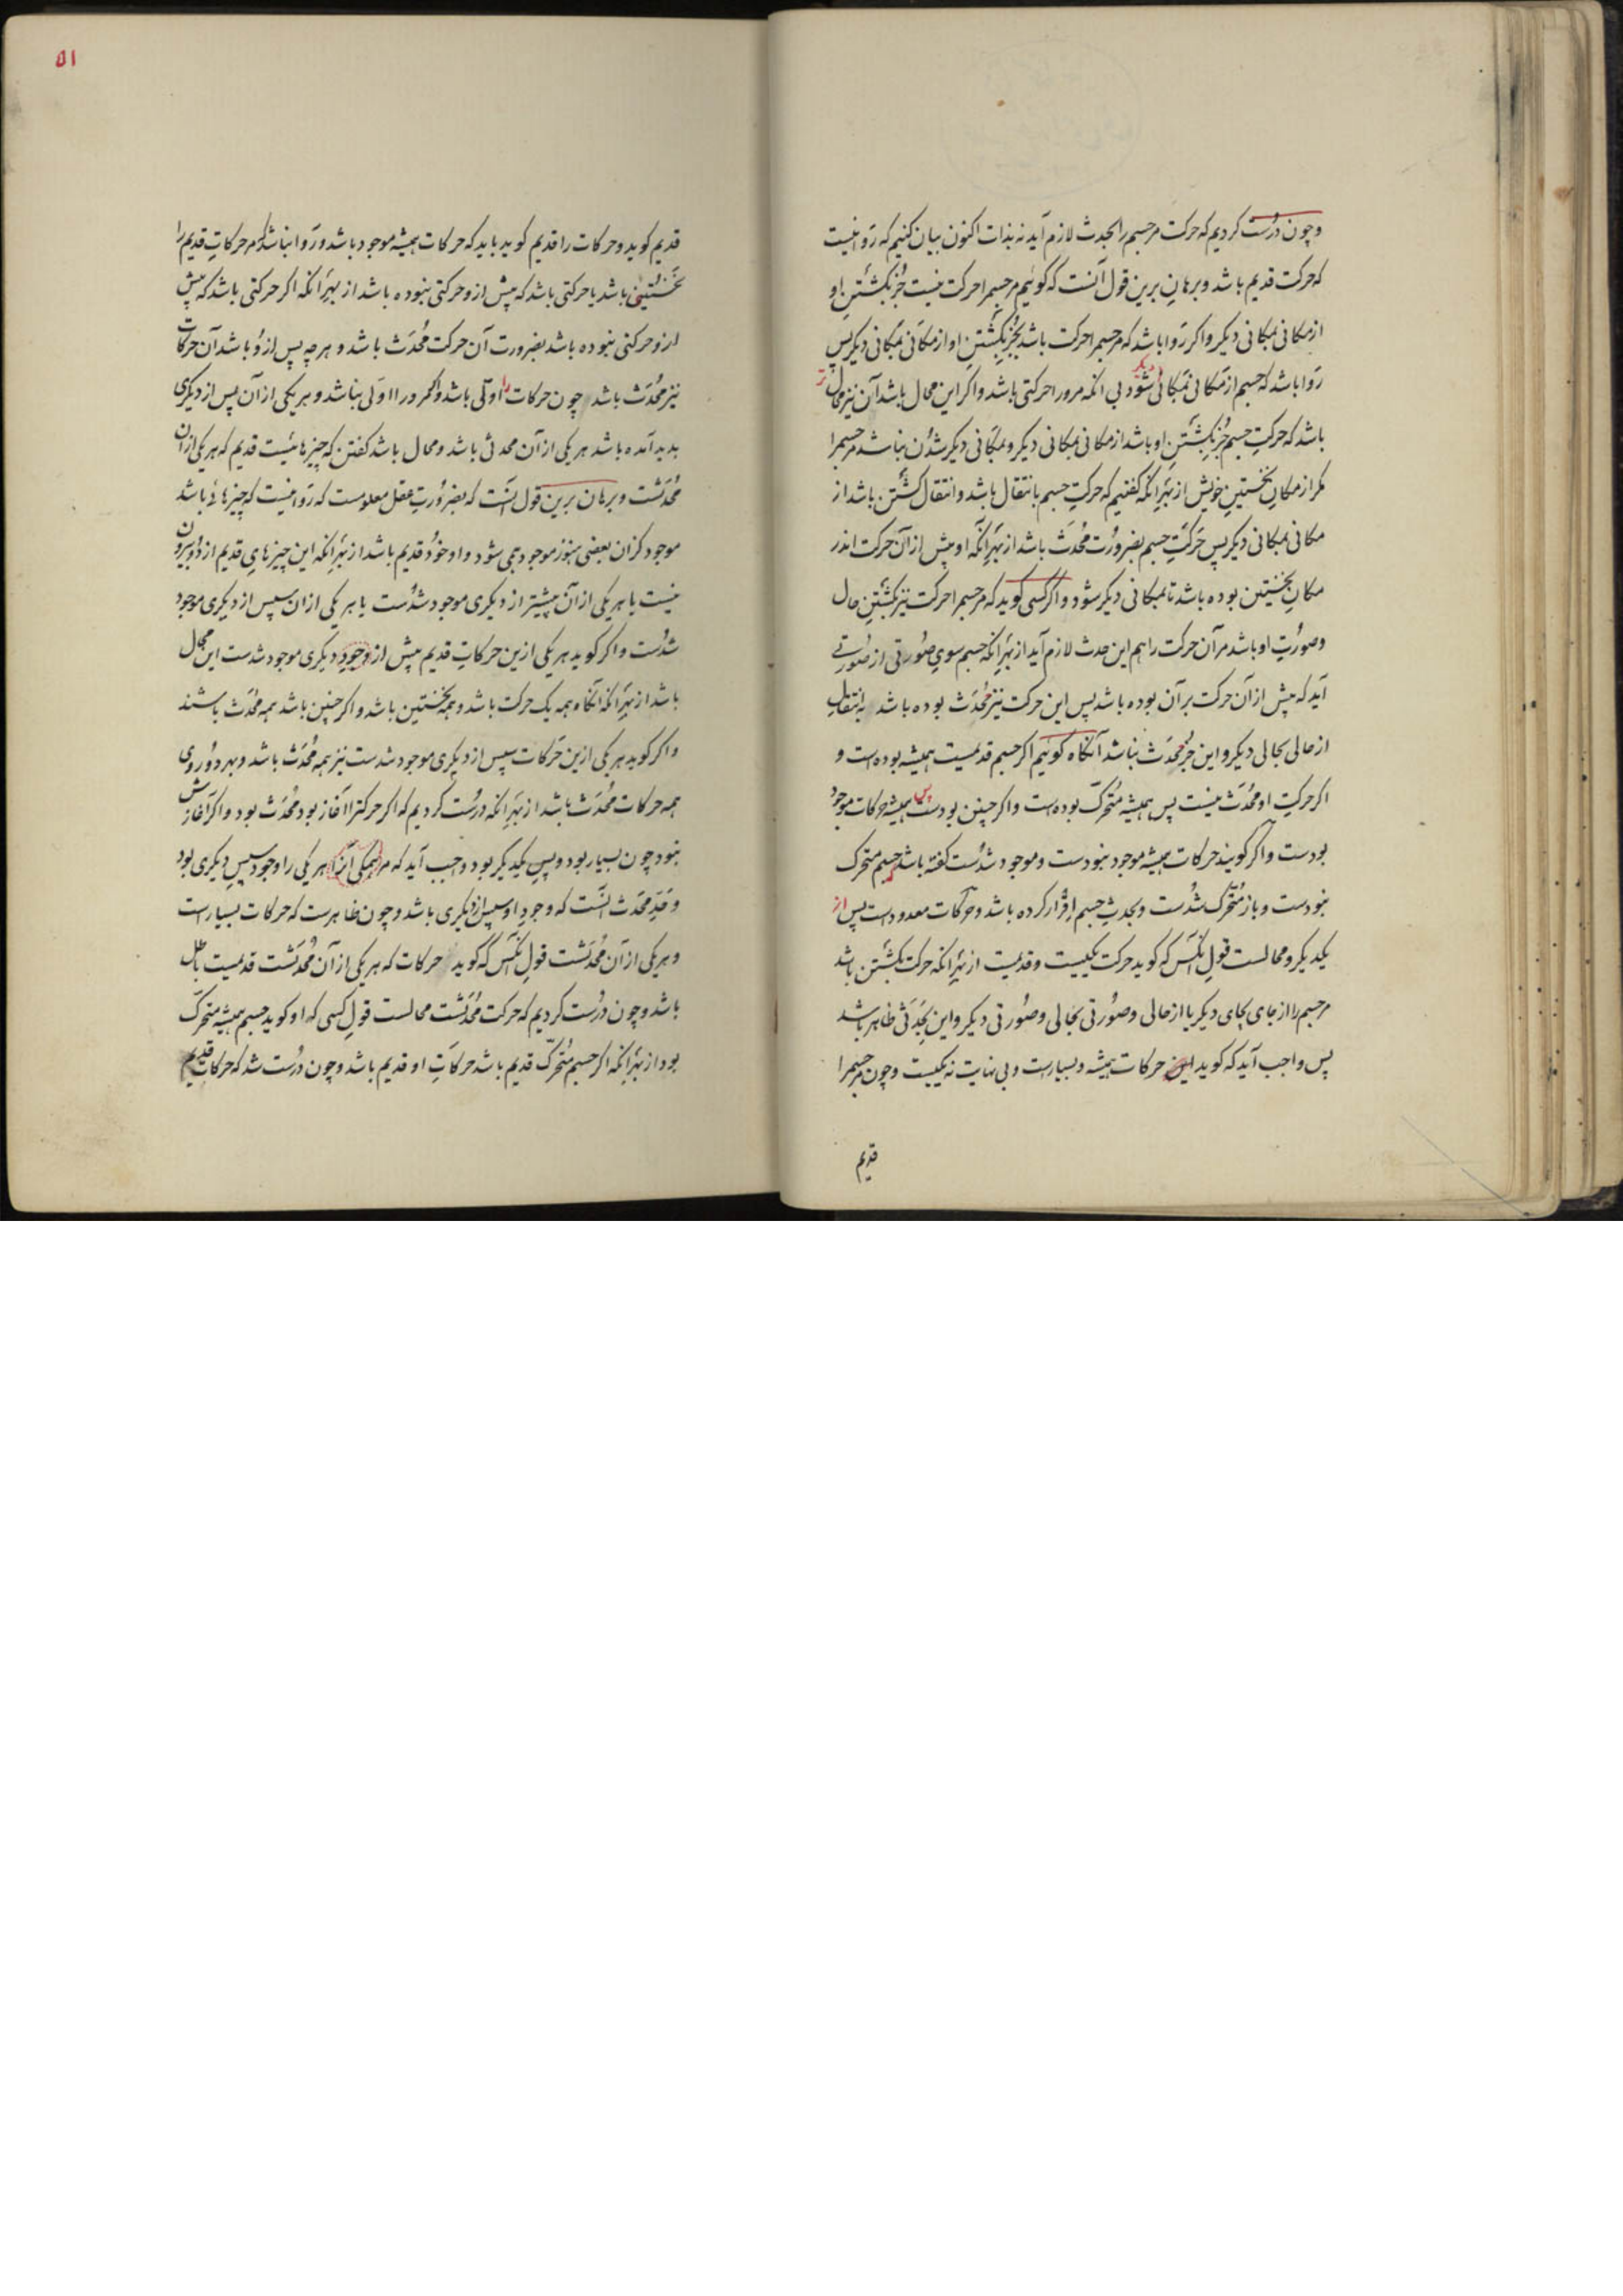 و چون درست کردیم که حرکت مر جسم را بحدث لازم آید نه بذات اکنون بیان کنیم که روا نیست
که حرکت قدیم باشد و برهان برین قول آنست که کوئیم مر جسم را حرکت نیست جز بکشتن او
از مکانی بمکانی دیکر و اکر روا باشد که مر جسم را حرکت باشد بجز بکشتن او از مکانی بمکانی دیکر پس
روا باشد که جسم از مکانی بمکانی دیکر شود بی آنکه مرورا حرکتی باشد و اکر این محال باشد آن نیز محال تر
باشد که حرکت جسم جز بکشتن او باشد از مکانی بمکانی دیکر و بمکانی دیکر شدن نباشد مر جسم را
مکر از مکان نخستین خویش از بهر آنکه کفتیم که حرکت جسم بانتقال باشد و انتقال کشتن باشد از
مکانی بمکانی دیکر پس حرکت جسم بضرورت محدث باشد از بهر آنکه او پیش از آن حرکت اندر
مکان نخستین بوده باشد تا بمکانی دیکر شود و اکر کسی کوید که مر جسم را حرکت نیز بکشتن حال
و صورت او باشد مر آن حرکت را هم این حدث لازم آید از بهر آنکه جسم سوی صورتی از صورتی
آید که پیش از آن حرکت بر آن بوده باشد پس این حرکت نیز محدث بوده باشد به انتقال
از حالی بحالی دیکر و این جز محدث نباشد آنکاه کوئیم اکر جسم قدیمست همیشه بوده است و
اکر حرکت او محدث نیست پس همیشه متحرک بوده است و اکر چنین بودست پس همیشه حرکات موجود
بودست و اکر کویند حرکات همیشه موجود نبودست و موجود شدست کفته باشد که جسم متحرک
نبودست و باز متحرک شدست و بحدث جسم اقرار کرده باشد و حرکات معدود است پس از
یکدیکر و محالست قول آنکس که کوید حرکت یکیست و قدیمست از بهر آنکه حرکت بکشتن باشد
مر جسم را از جای بجای دیکر یا از حالی و صورتی بحالی و صورتی دیکر و این بحدثی ظاهر باشد
پس واجب آید که کوید این حرکات همیشه و بسیارست و بی نهایت نه یکیست و چون مر جسم را
قدیم
۵۱
قدیم کوید و حرکات را قدیم کوید باید که حرکات همیشه موجود باشد و روا نباشد که مر حرکات قدیم را
نخستینی باشد یا حرکتی باشد که پیش ازو حرکتی نبوده باشد از بهر آنکه اکر حرکتی باشد که پیش
ازو حرکتی نبوده باشد بضرورت آن حرکت محدث باشد و هرچه پس ازو باشد آن حرکات
نیز محدث باشد چون حرکات را اولی باشد و اکر مرورا اولی نباشد و هر یکی از آن پس از دیکری
بدید آمده باشد هر یکی از آن محدثی باشد و محال باشد کفتن که چیزهائیست قدیم که هر یکی از آن
محدثست و برهان برین قول آنست که بضرورت عقل معلومست که روا نیست که چیزهائی باشد
موجود کزان بعضی هنوز موجود همی شود و او خود قدیم باشد از بهر آنکه این چیزهای قدیم از دو بیرون
نیست یا هر یکی از آن پیشتر از دیکری موجود شدست یا هر یکی از ان سپس از دیکری موجود
شدست و اکر کوید هر یکی ازین حرکات قدیم پیش از وجود دیکری موجود شدست این محال
باشد از بهر آنکه آنکاه همه یک حرکت باشد و همه نخستین باشد و اکر چنین باشد همه محدث باشند
و اکر کوید هر یکی ازین حرکات سپس از دیکری موجود شدست نیز همه محدث باشد و بهر دو روی
همه حرکات محدث باشد از بهر آنکه درست کردیم که اکر حرکترا آغاز بود محدث بود و اکر آغازش
نبود چون بسیار بود و پس یکدیکر بود واجب آید که مر همکی آنرا هر یکی را وجود سپس دیکری بود
و حد محدث آنست که وجود او سپس از دیکری باشد و چون ظاهرست که حرکات بسیارست
و هر یکی از آن محدثست قول آنکس که کوید حرکات که هر یکی از آن محدثست قدیمست باطل
باشد و چون درست کردیم که حرکت محدثست محالست قول کسی که او کوید جسم همیشه متحرک
بود از بهر آنکه اکر جسم متحرک قدیم باشد حرکات او قدیم باشد و چون درست شد که حرکات قدیم